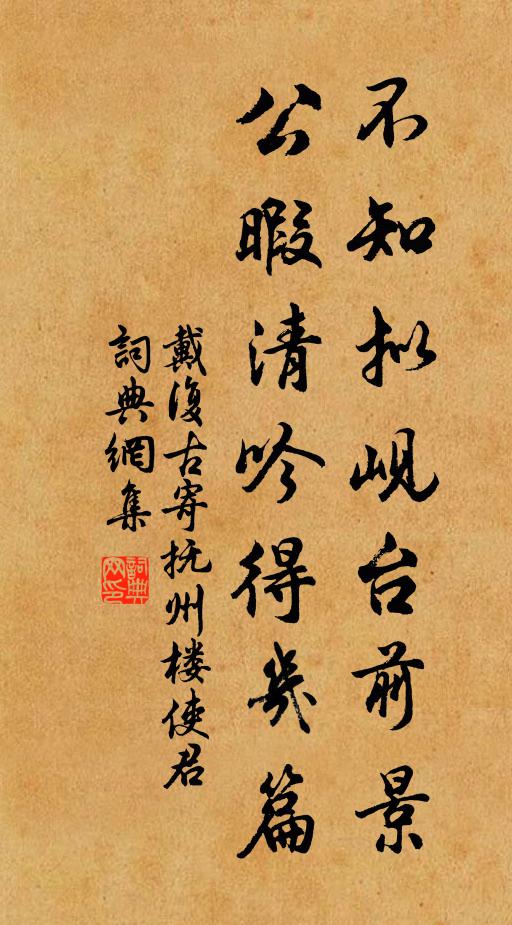 不知拟岘台前景
公暇清吟得幾篇
戴復古寄抚州楼使君
詞典網集
詞典网印